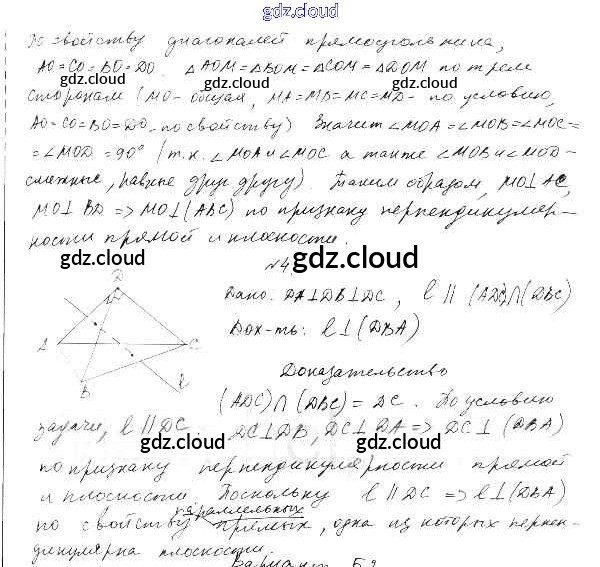 gdz.cloud
По свойству диагоналей прямоугольника,
AO=CO=BO=DO. △AOM=△BOM=△COM=△DOM по трем
сторонам (MO- общая, MA=MB=MC=MD- по условию,
AO=CO=BO=DO-по свойству) Значит ∠MOA=∠MOB=∠MOC=
=∠MOD=90° (т.к. ∠MOA и ∠MOC а также ∠MOB и ∠MOD-
смежные, равные друг другу). Таким образом, MO⊥AC,
MO⊥BD => MO⊥(ABC) по признаку перпендикуляр-
ности прямой и плоскости.
gdz.cloud gdz.cloud gdz.cloud
№4.
D
Дано: DA⊥DB⊥DC, l || (ADC)∩(DBC)
Док-ть: l⊥(DBA)
A C
B l
Доказательство
(ADC)∩(DBC)=DC. По условию
задачи, l || DC DC⊥DB, DC⊥DA => DC⊥(DBA)
gdz.cloud gdz.cloud gdz.cloud
по признаку перпендикулярности прямой
и плоскости. Поскольку l || DC => l⊥(DBA)
параллельных
по свойству прямых, одна из которых перпен-
дикулярна плоскости.
Вариант Б2
gdz.cloud gdz.cloud gdz.cloud